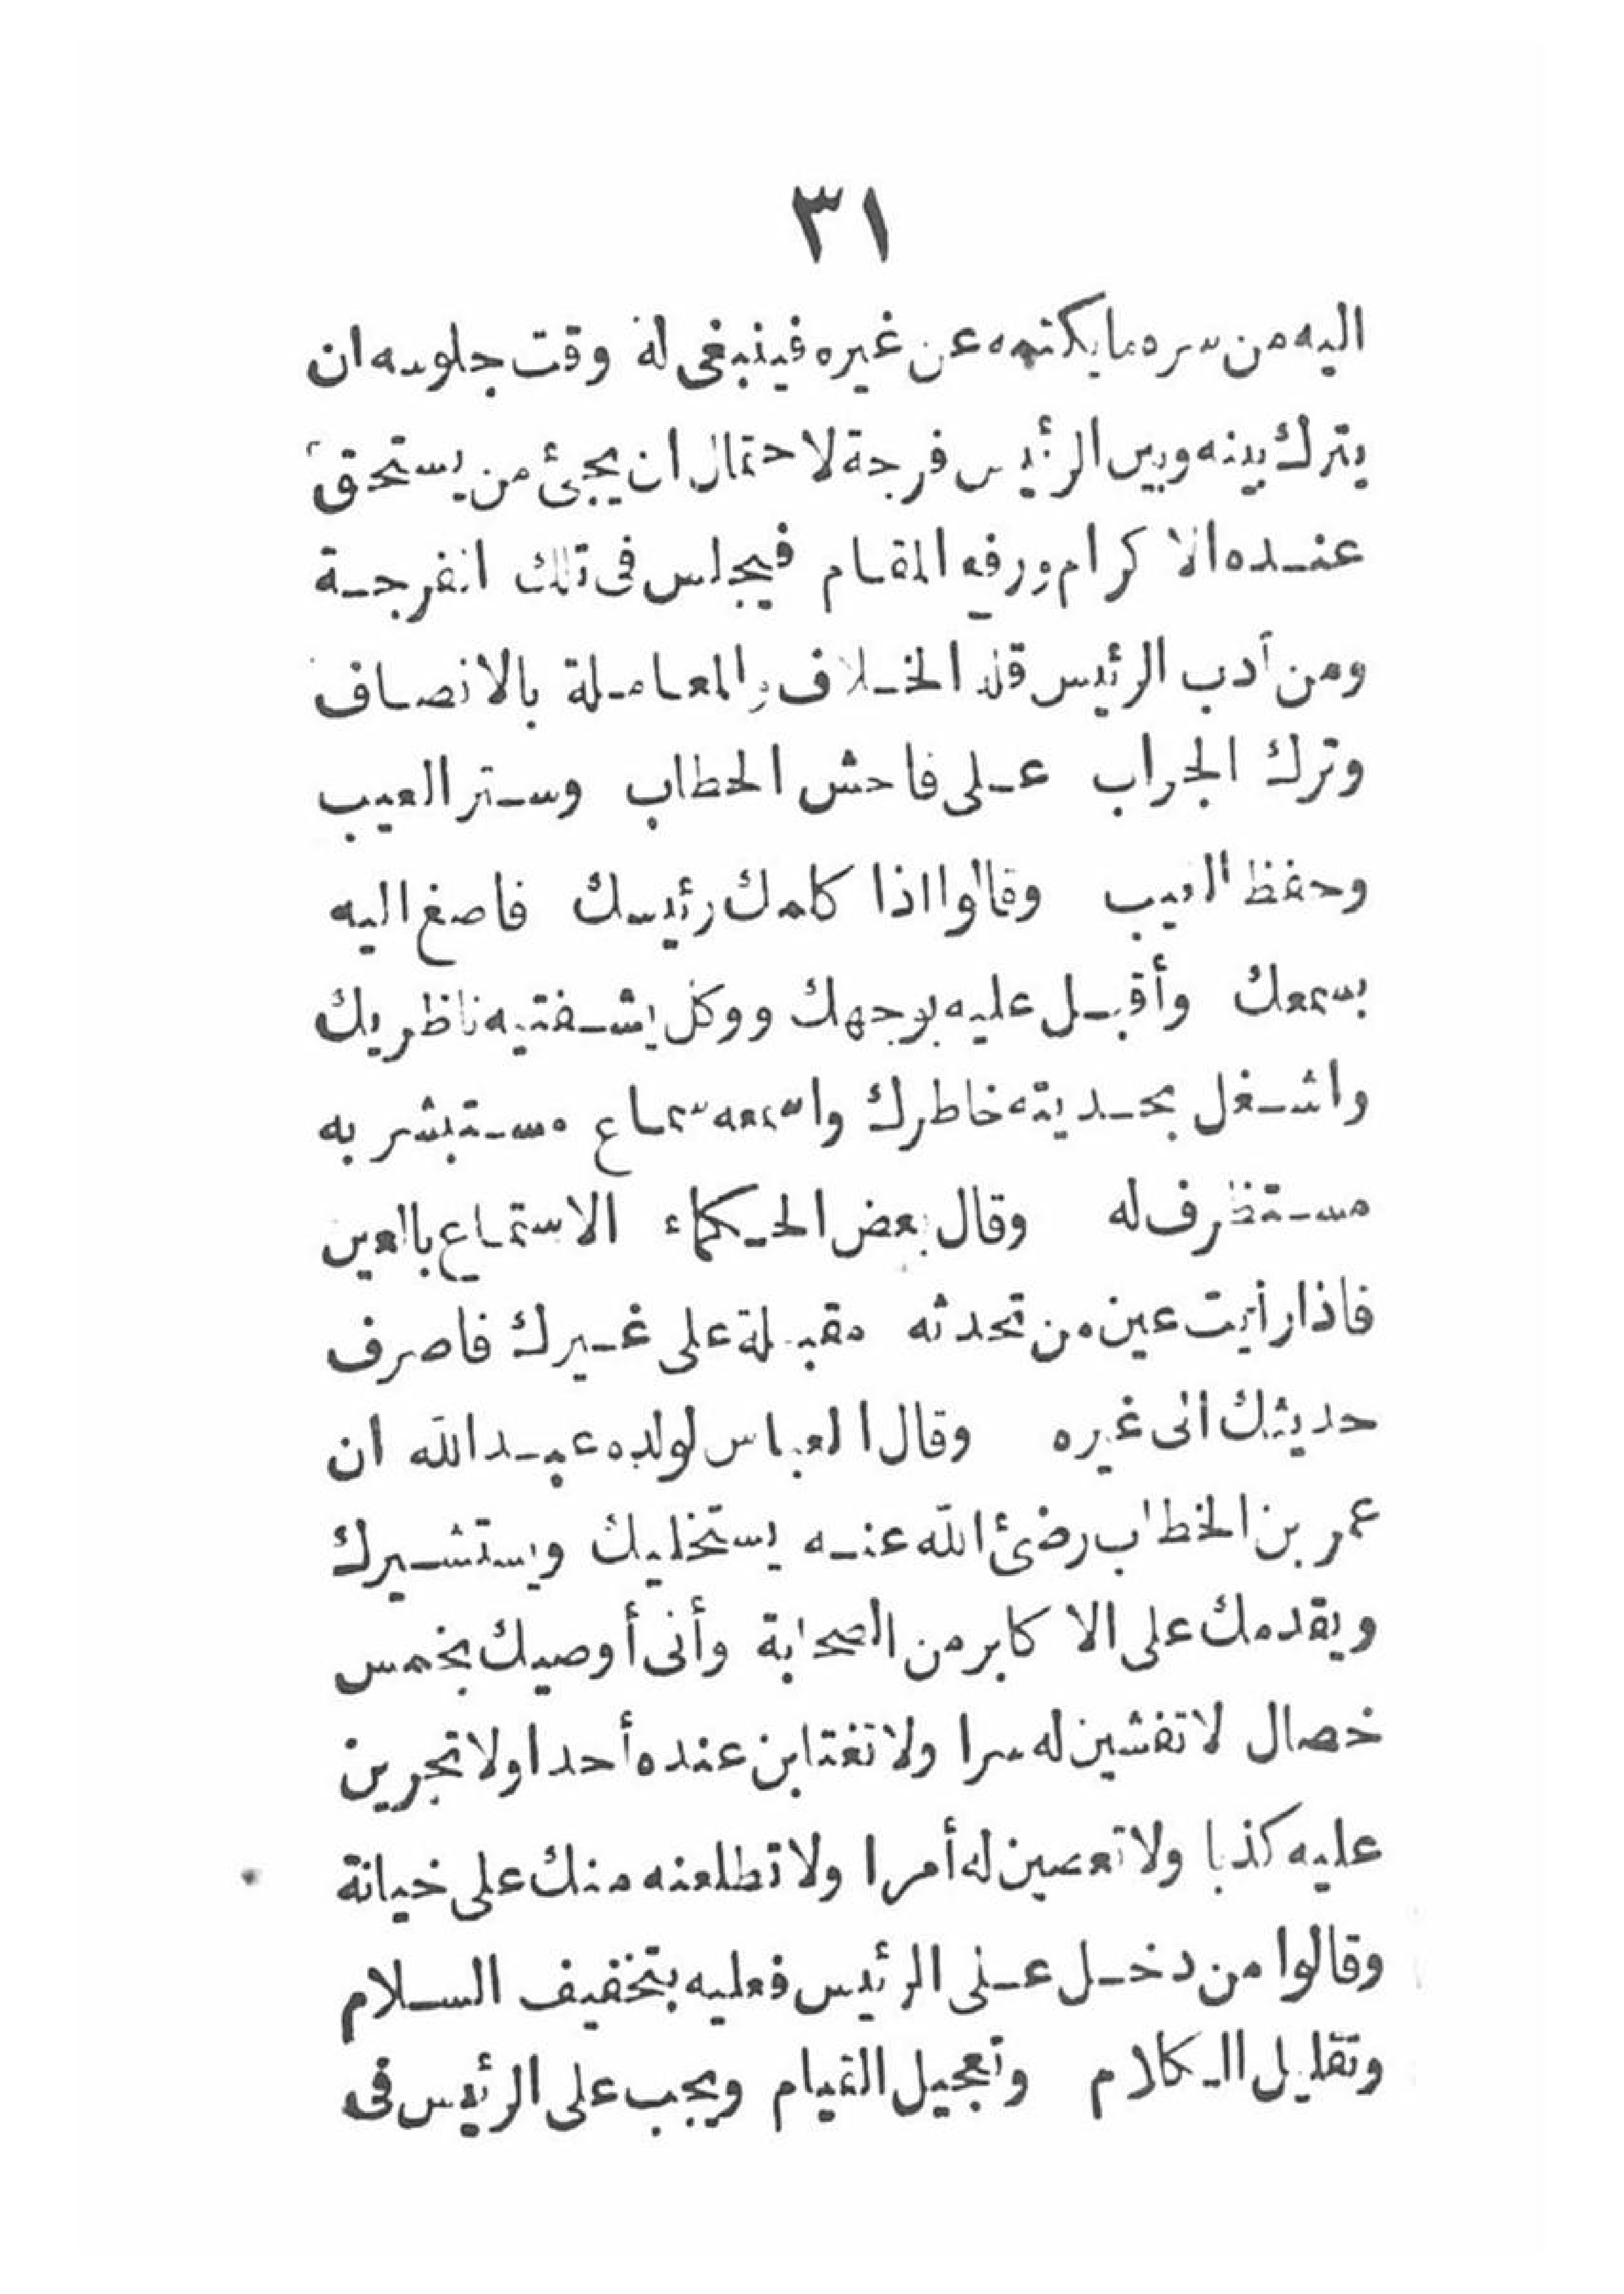 ٣١
اليه من سره ما يكتمه عن غيره فينبغى له وقت جلوسه ان
يترك بينه وبين الرئيس فرجة لاحتمال ان يجئ من يستحق
عنده الاكرام ورفيع المقام فيجلس فى تلك الفرجة
ومن أدب الرئيس قلة الخلاف والمعاملة بالانصاف
وترك الجواب على فاحش الخطاب وستر العيب
وحفظ الغيب وقالوا اذا كلمك رئيسك فاصغ اليه
بسمعك وأقبل عليه بوجهك ووكل بشفتيه ناظريك
واشغل بحديثه خاطرك واسمعه سماع مستبشر به
مستظرف له وقال بعض الحكماء الاستماع بالعين
فاذا رأيت عين من تحدثه مقبلة على غيرك فاصرف
حديثك الى غيره وقال العباس لولده عبد الله ان
عمر بن الخطاب رضى الله عنه يستخليك ويستشيرك
ويقدمك على الاكابر من الصحابة وأنى أوصيك بخمس
خصال لا تفشين له سرا ولا تغتابن عنده أحدا ولا تجرين
عليه كذبا ولا تعصين له أمرا ولا تطلعنه منك على خيانة
وقالوا من دخل على الرئيس فعليه بتخفيف السلام
وتقليل الكلام وتعجيل القيام ويجب على الرئيس فى